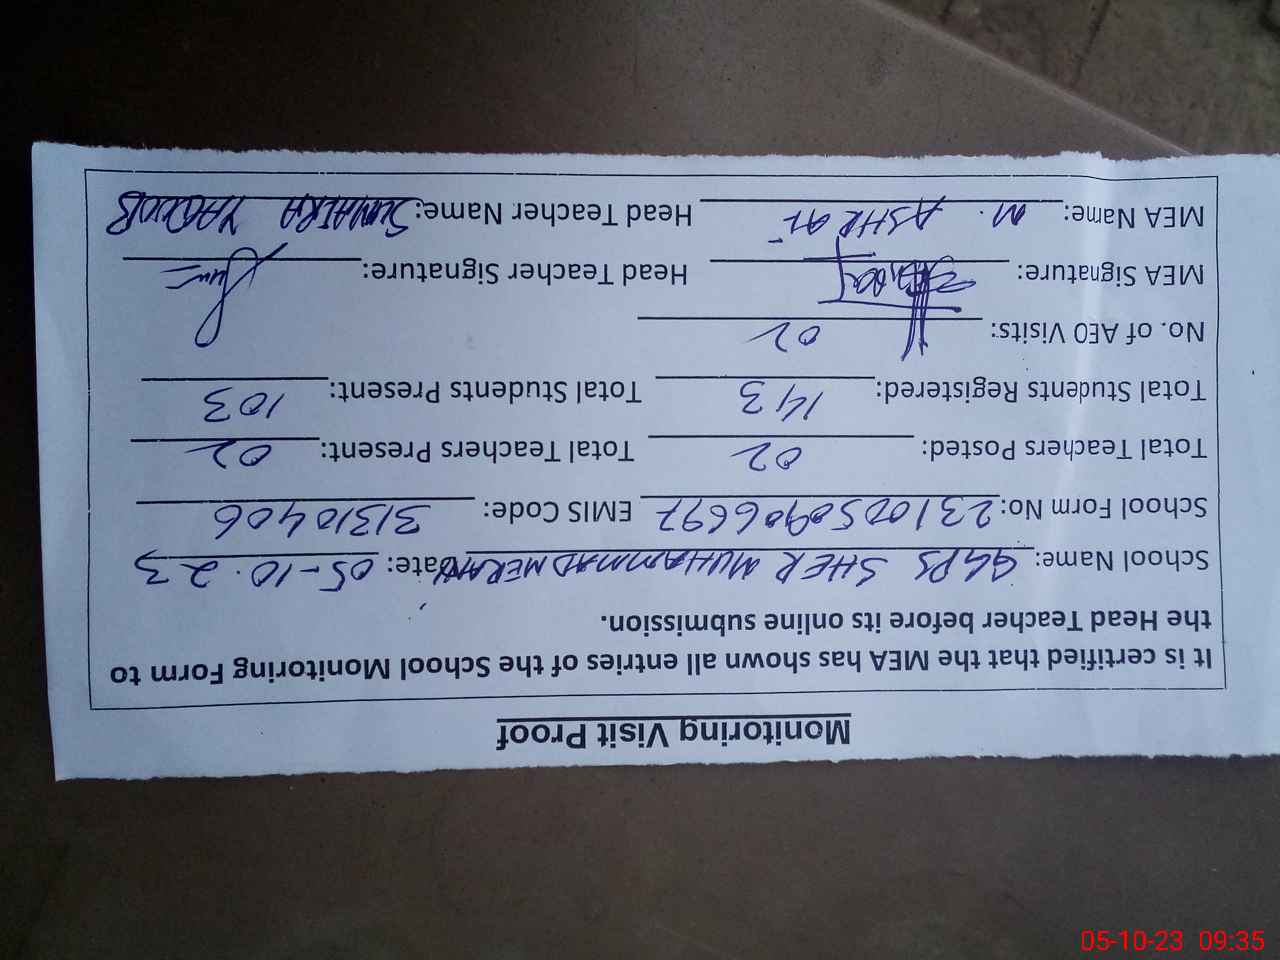 Monitoring Visit Proof
It is certified that the MEA has shown all entries of the School Monitoring Form to
the Head Teacher before its online submission.
School Name: GGPS SHER MUHAMMAD MERANI Date: 05-10.23
School Form No: 2310050906697 EMIS Code: 31310406
Total Teachers Posted: 02 Total Teachers Present: 02
Total Students Registered: 143 Total Students Present: 103
No. of AEO Visits: 02
MEA Signature: Head Teacher Signature:
MEA Name: M. ASHRAF Head Teacher Name: SUMAIRA YAQOOB
05-10-23 09:35